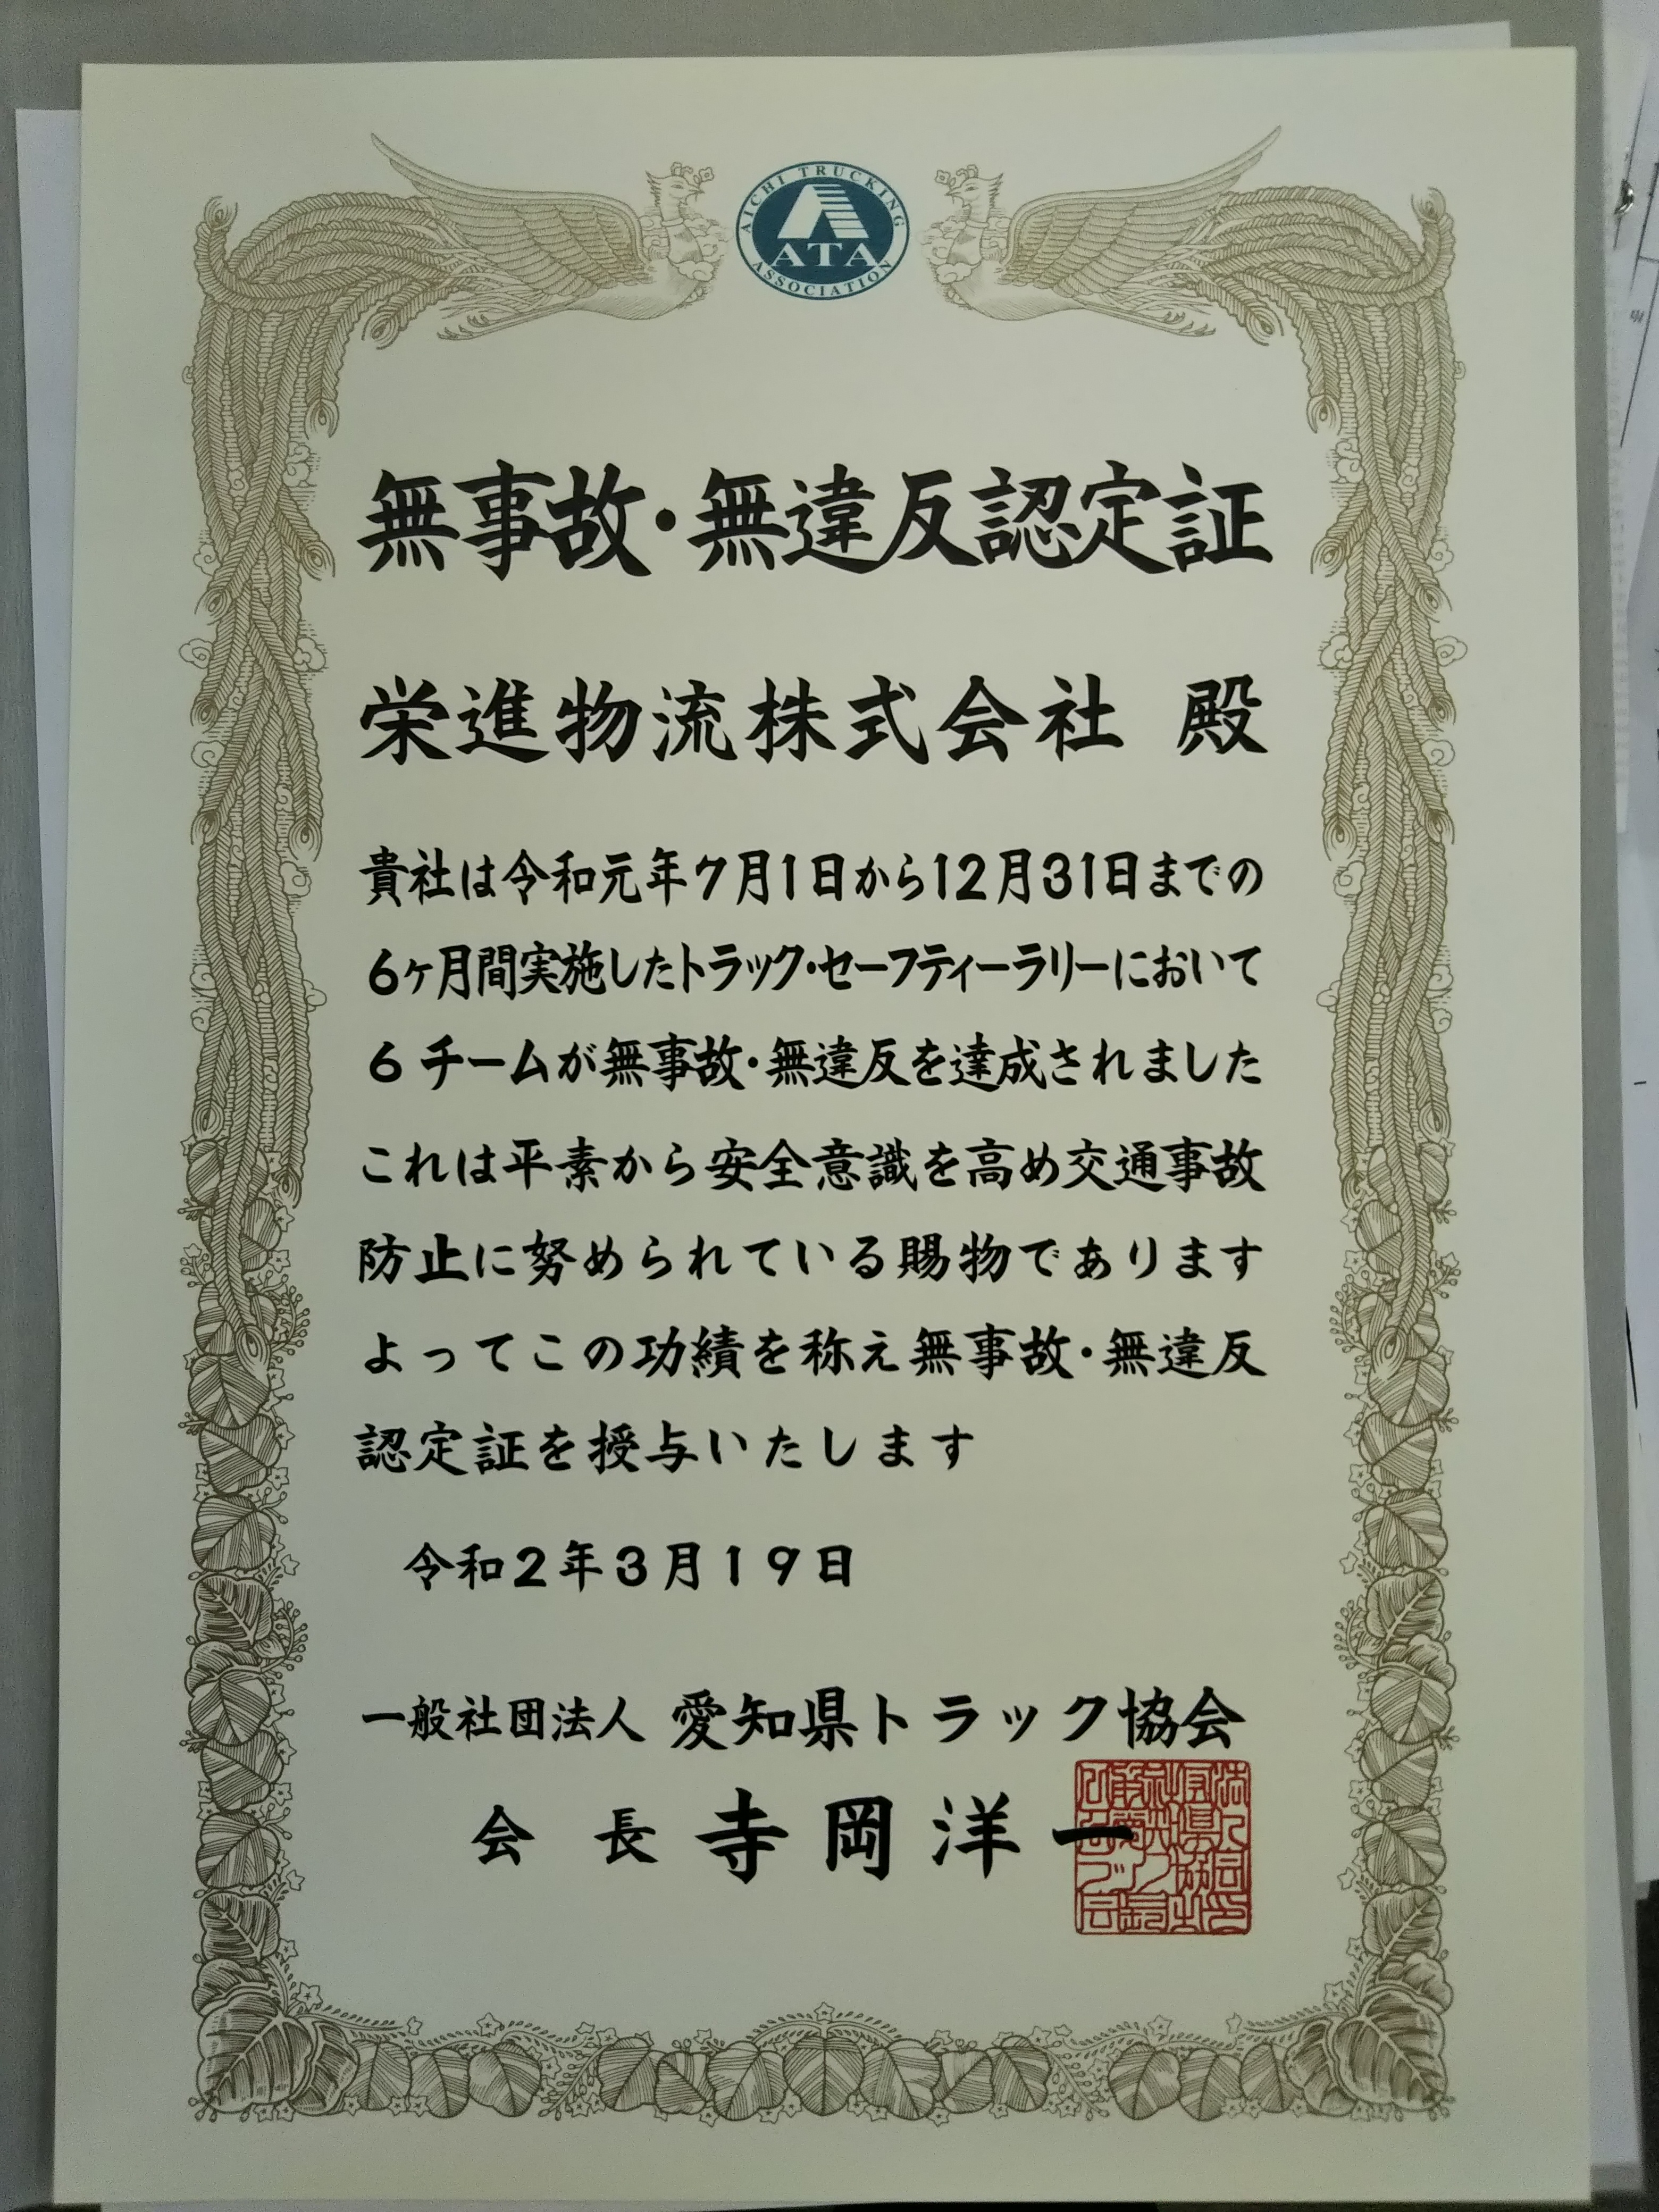 AICHI TRUCKING
ATA
ASSOCIATION
無事故・無違反認定証
栄進物流株式会社 殿
貴社は令和元年7月1日から12月31日までの
6ヶ月間実施したトラック・セーフティーラリーにおいて
6チームが無事故・無違反を達成されました
これは平素から安全意識を高め交通事故
防止に努められている賜物であります
よってこの功績を称え無事故・無違反
認定証を授与いたします
令和2年3月19日
一般社団法人 愛知県トラック協会
会長 寺岡洋一